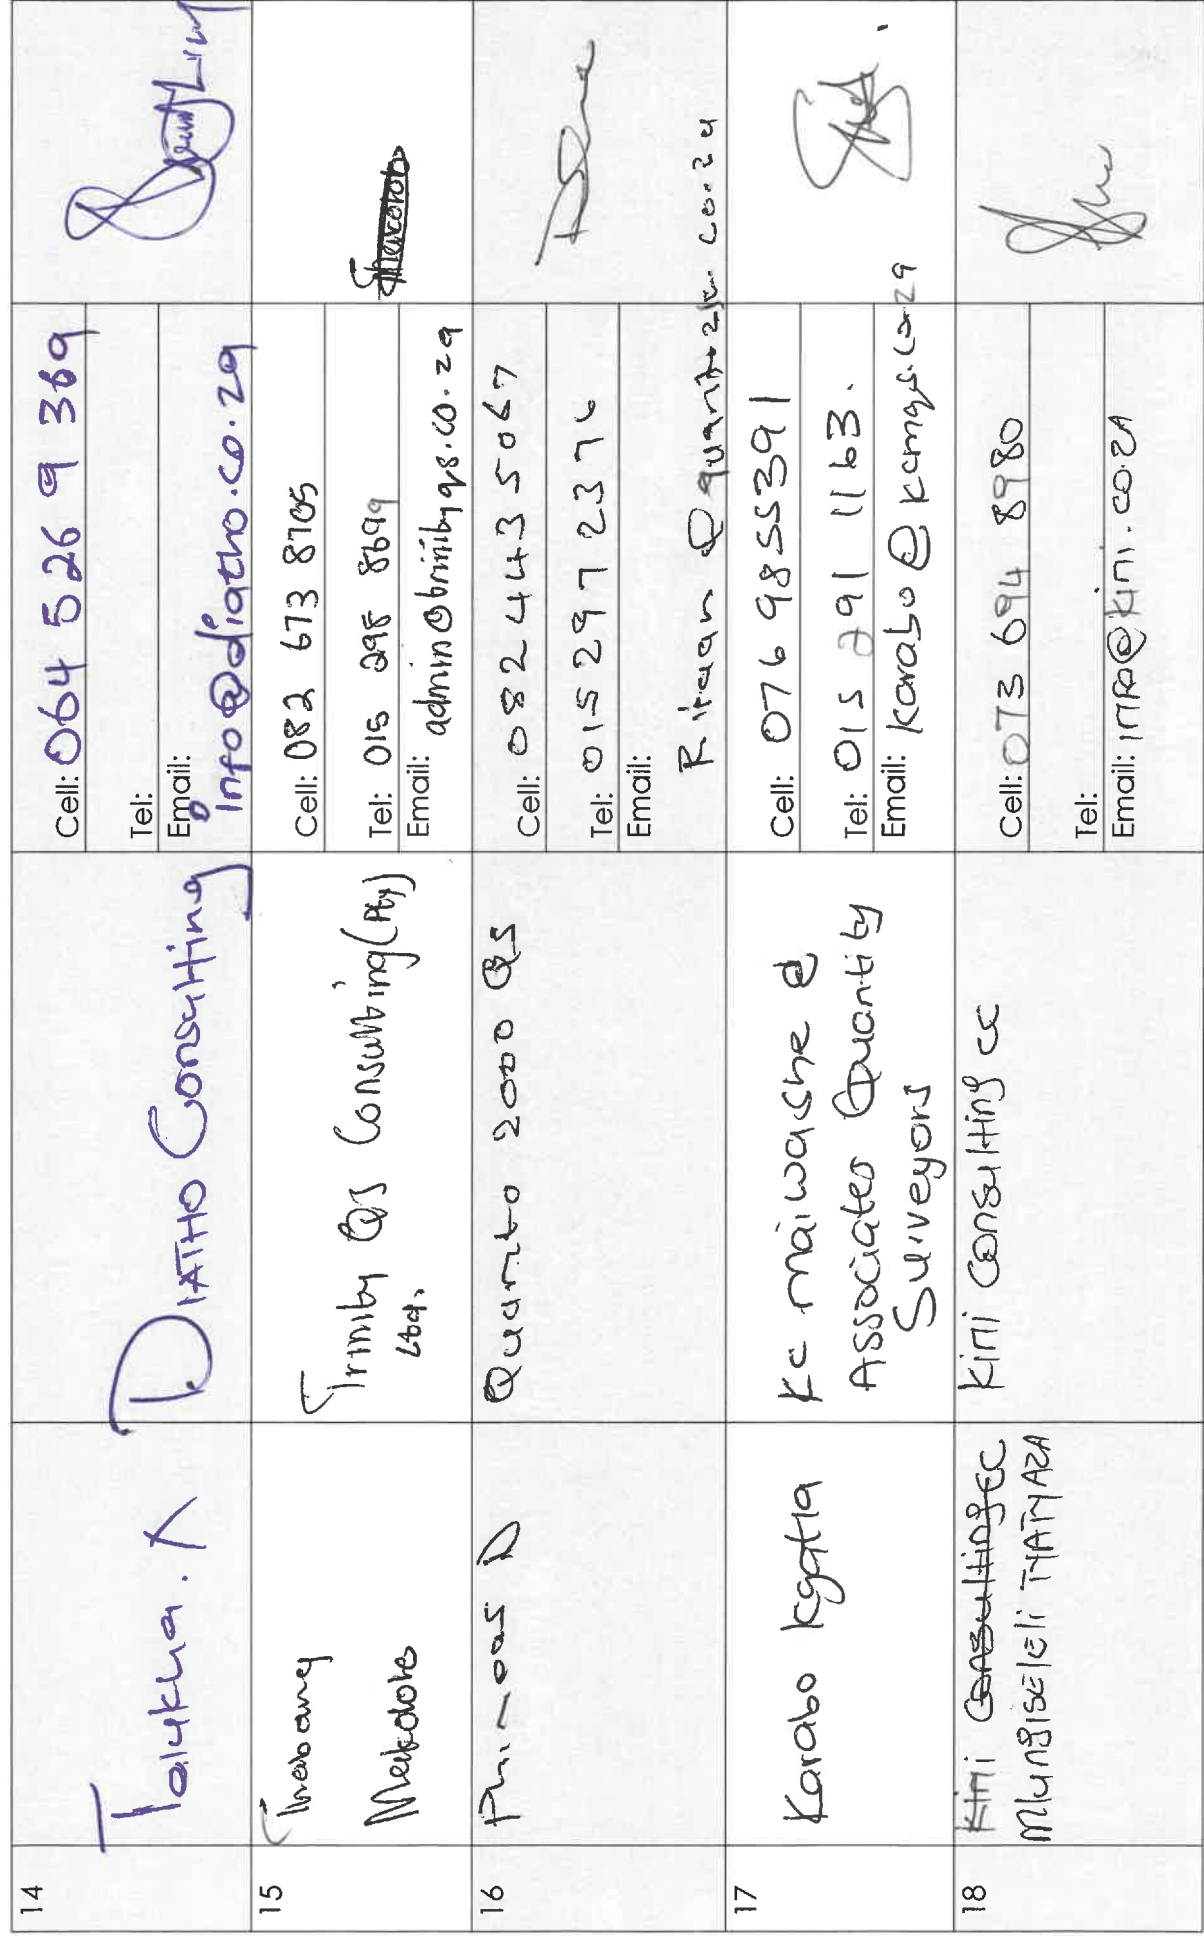 14
Talukha . X
DIATHO Consulting
Cell: 064 526 9 369
Tel:
Email:
info@diatho.co.za
15
Thabang
Makdore
Trinity QS Consulting (Pty)
Ltd.
Cell: 082 673 8705
Tel: 015 298 8699
Email:
admin@trinityqs.co.za
16
D
Quanto 2000 QS
Cell: 082 443 5067
Tel: 015 297 2376
Email:
17
Karabo Kgatla
Kc maiwashe &
Associates Quantity
Surveyors
Cell: 076 9855391
Tel: 015 291 1163.
Email: karabo@kcmqs.co.za
18
Kini Consulting cc
Mlungiseleli TYATYAZA
Kini Consulting cc
Cell: 073 694 8980
Tel:
Email: info@kini.co.za